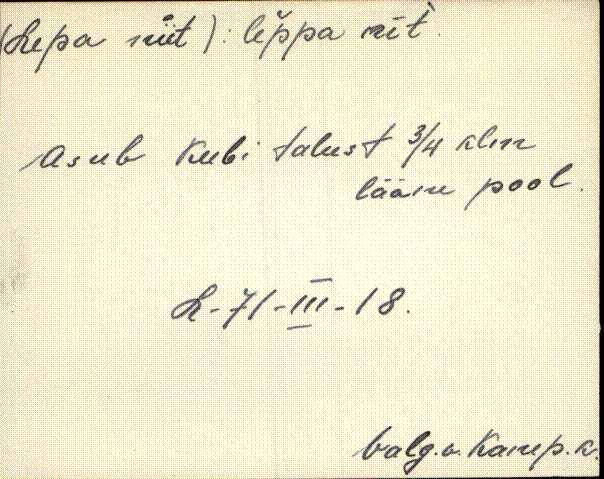 (Lepa niit): lèppa nìt̀.
Asub Kubi talust 3/4 klm
lääne pool.
L-71-III-18.
Valg.v. Kanep.k.